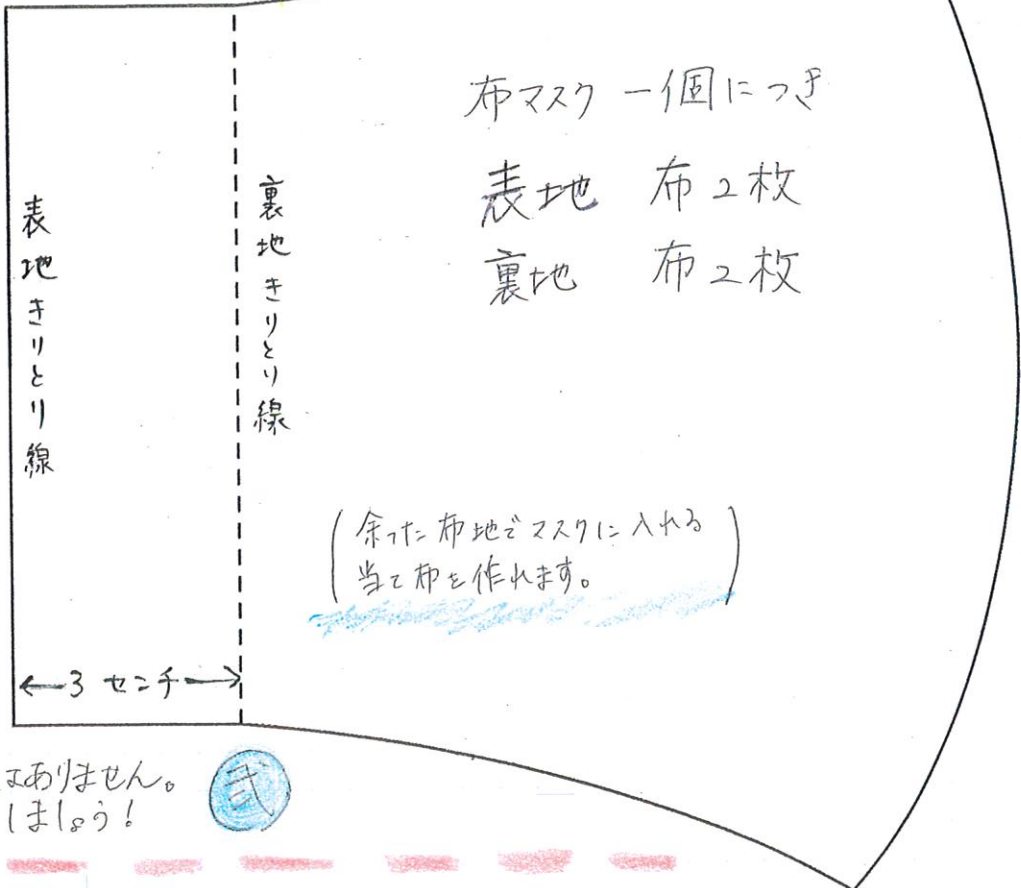 布マスク 一個につき
表地 布2枚
裏地 布2枚
表地きりとり線
裏地きりとり線
(余った布地でマスクに入れる
当て布を作れます。)
←3センチ→
はありません。
しましょう!
弐